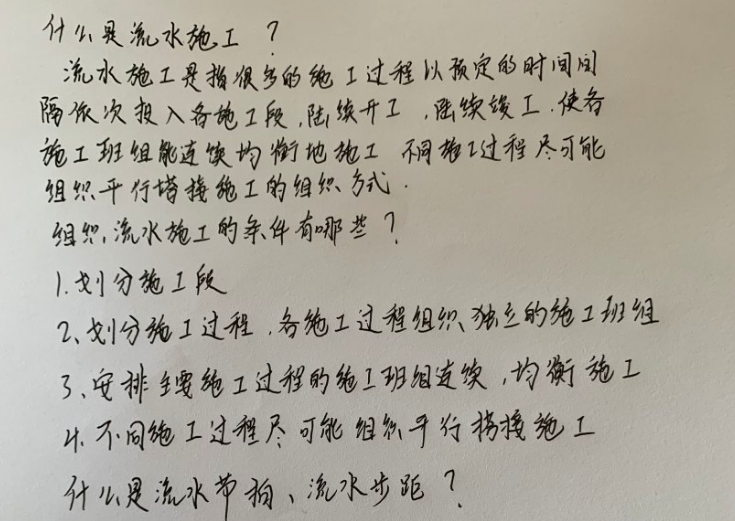 什么是流水施工？
流水施工是指很多的施工过程以预定的时间间
隔依次投入各施工段，陆续开工，陆续竣工，使各
施工班组能连续均衡地施工 不同施工过程尽可能
组织平行搭接施工的组织方式.
组织流水施工的条件有哪些？
1.划分施工段
2、划分施工过程，各施工过程组织独立的施工班组
3、安排主要施工过程的施工班组连续，均衡施工
4.不同施工过程尽可能组织平行搭接施工
什么是流水节拍、流水步距？